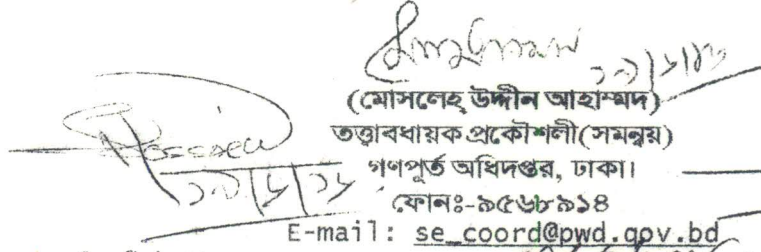 (মোসলেহ্ উদ্দীন আহাম্মদ)
তত্ত্বাবধায়ক প্রকৌশলী(সমন্বয়)
গণপূর্ত অধিদপ্তর, ঢাকা।
ফোনঃ-৯৫৬৮৯১৪
E-mail: se_coord@pwd.gov.bd